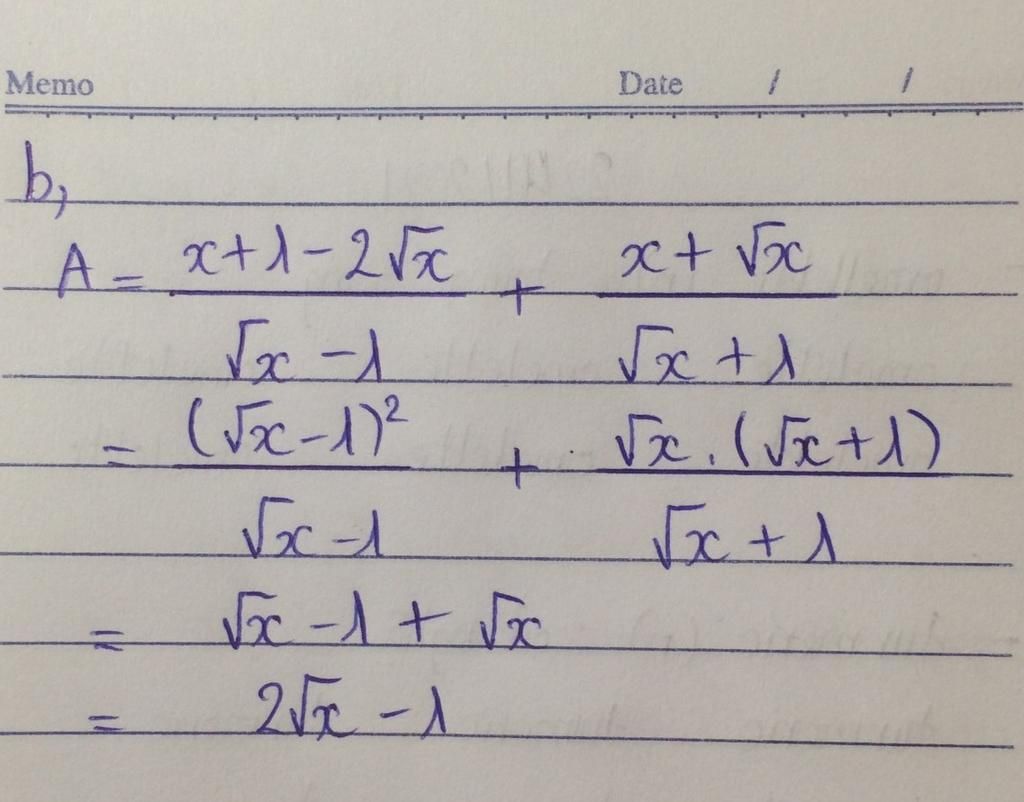 Memo Date / /
b,
A = \frac{x+1-2\sqrt{x}}{\sqrt{x}-1} + \frac{x+\sqrt{x}}{\sqrt{x}+1}
= \frac{(\sqrt{x}-1)^2}{\sqrt{x}-1} + \frac{\sqrt{x}.(\sqrt{x}+1)}{\sqrt{x}+1}
= \sqrt{x}-1+\sqrt{x}
= 2\sqrt{x}-1